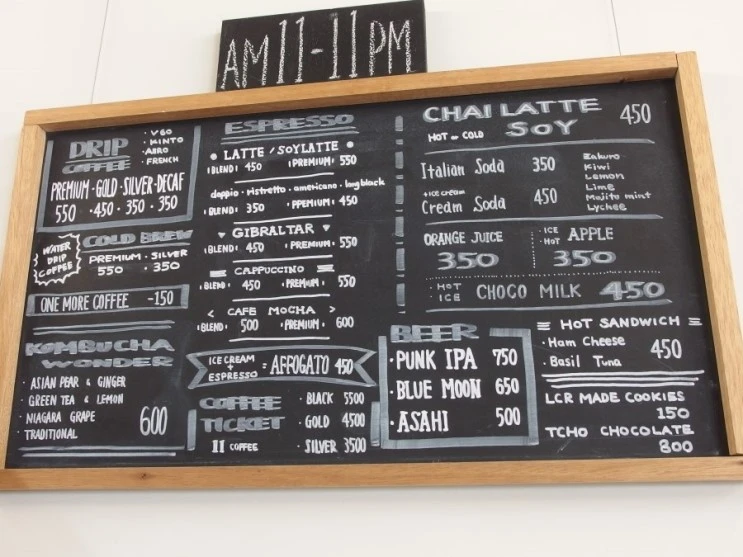 AM11-11PM
DRIP
COFFEE
· V60
· KINTO
· AERO
· FRENCH
PREMIUM · GOLD · SILVER · DECAF
550 · 450 · 350 · 350
WATER
DRIP
COFFEE
COLD BREW
PREMIUM · SILVER
550 · 350
ONE MORE COFFEE -150
KOMBUCHA
WONDER
· ASIAN PEAR & GINGER
· GREEN TEA & LEMON
· NIAGARA GRAPE
· TRADITIONAL
600
ESPRESSO
• LATTE / SOYLATTE •
· BLEND · 450 · PREMIUM · 550
doppio · ristretto · americano · longblack
· BLEND · 350 · PPEMIUM · 450
GIBRALTAR
· BLEND · 450 · PREMIUM · 550
CAPPUCCINO
· BLEND · 450 · PREMIUM · 550
< CAFE MOCHA >
· BLEND · 500 · PREMIUM · 600
ICE CREAM
+
ESPRESSO
= AFFOGATO 450
COFFEE
TICKET
11 COFFEE
· BLACK 5500
· GOLD 4500
· SILVER 3500
CHAI LATTE 450
HOT or COLD SOY
Italian Soda 350
+ice cream
Cream Soda 450
Zakuro
Kiwi
Lemon
Lime
Mojito mint
Lychee
ORANGE JUICE
350
· ICE
· HOT
APPLE
350
· HOT
· ICE
CHOCO MILK 450
BEER
· PUNK IPA 750
· BLUE MOON 650
· ASAHI 500
HOT SANDWICH
· Ham Cheese
· Basil Tuna
450
LCR MADE COOKIES
150
TCHO CHOCOLATE
800